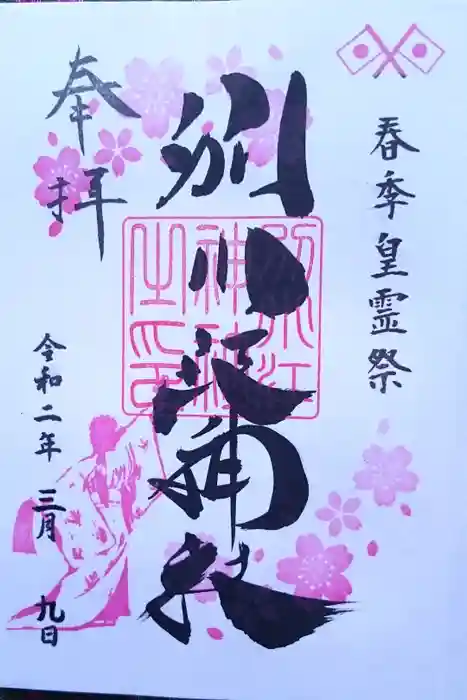 春季皇霊祭
別小江神社
別小江
神社
之印
奉拝
令和二年 三月 九日